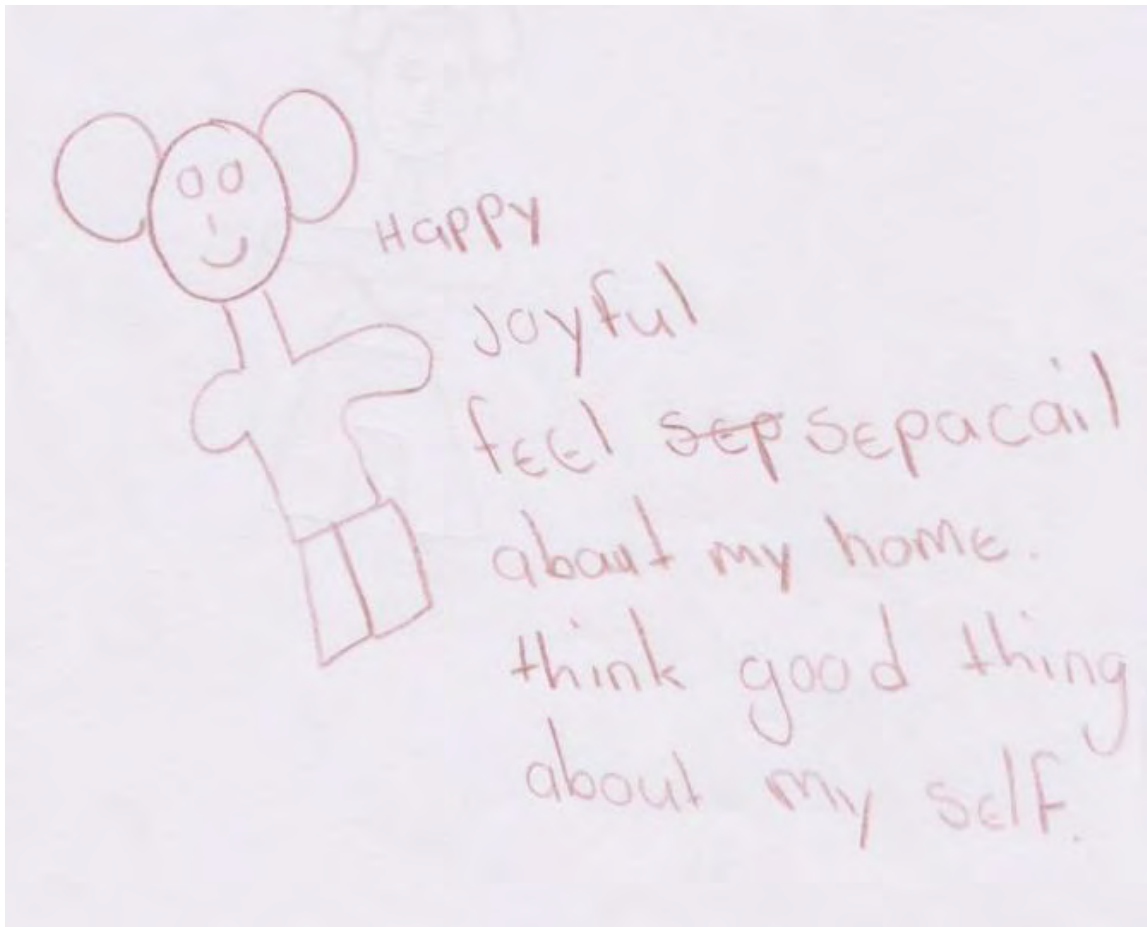 Happy
Joyful
feel sep sepacail
about my home.
think good thing
about my self.